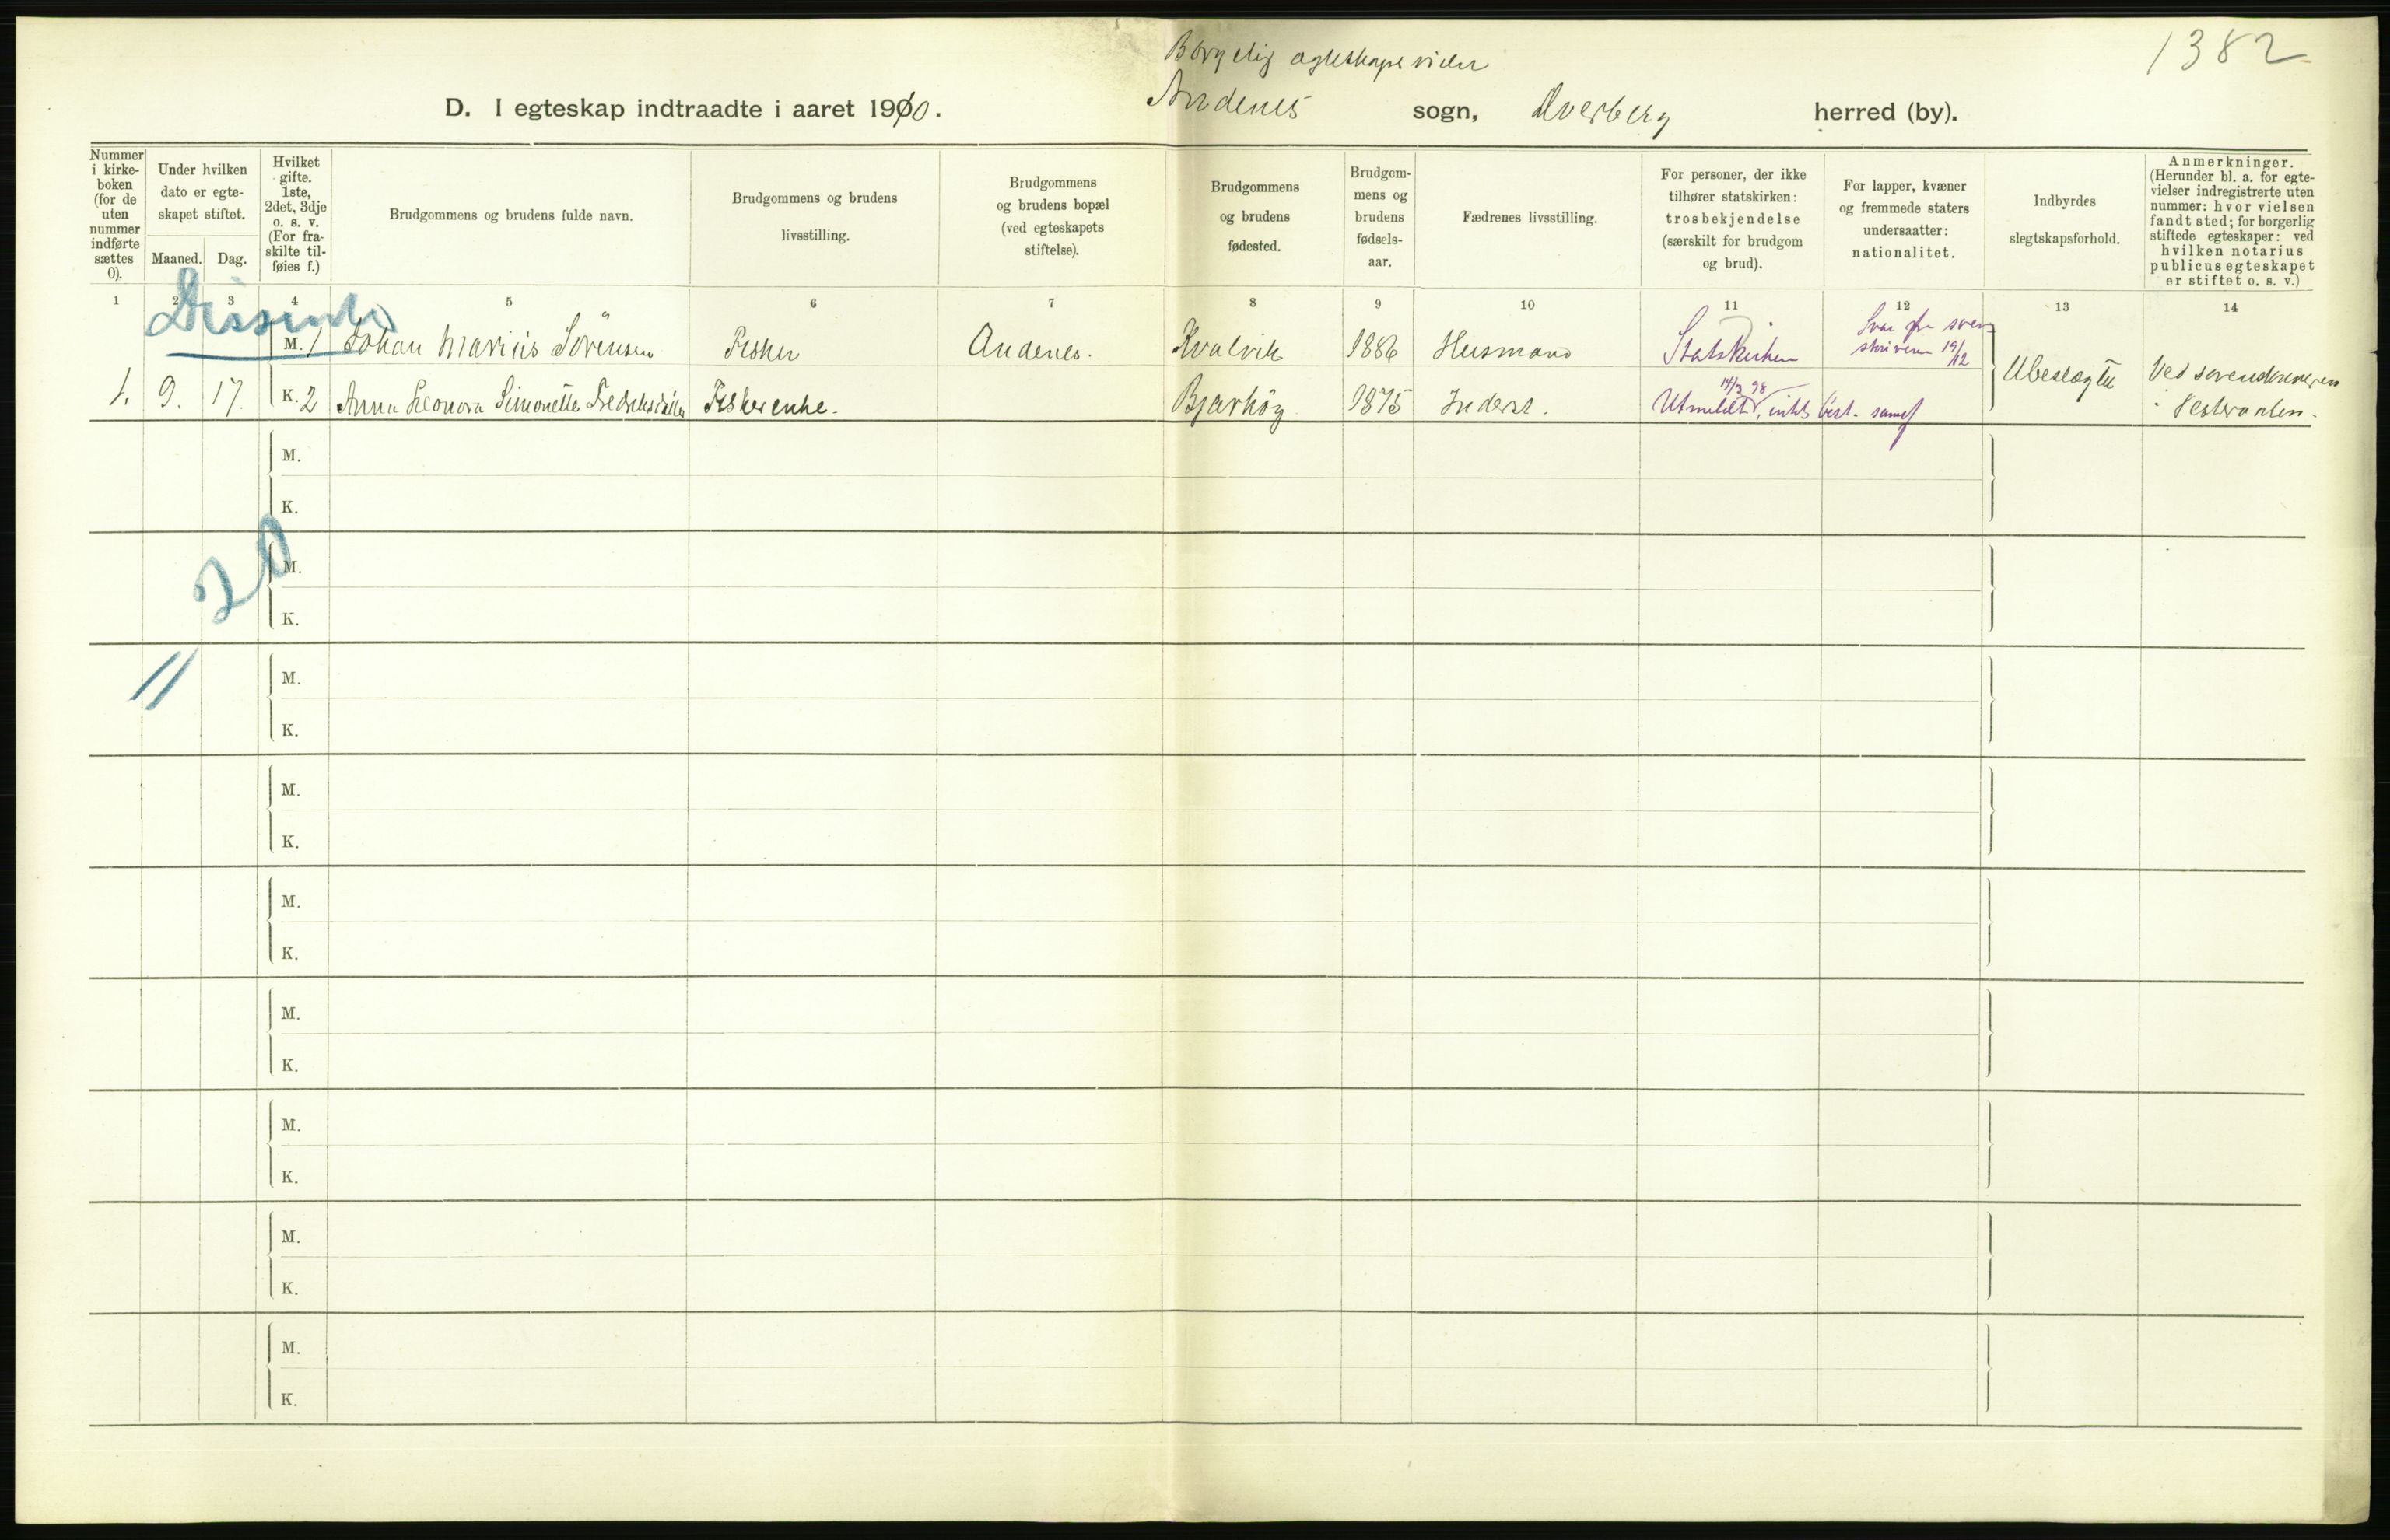 1382
Borgerlig ægteskapsvielser
D. I egteskap indtraadte i aaret 1910. Andenes sogn, Dverberg herred (by).
Nummer i kirke-boken (for de uten nummer indførte sættes 0).
Under hvilken dato er egte-skapet stiftet.
Maaned. Dag.
Hvilket gifte. 1ste, 2det, 3dje o. s. v. (For fra-skilte til-føies f.)
Brudgommens og brudens fulde navn.
Brudgommens og brudens livsstilling.
Brudgommens og brudens bopæl (ved egteskapets stiftelse).
Brudgommens og brudens fødested.
Brudgom-mens og brudens fødsels-aar.
Fædrenes livsstilling.
For personer, der ikke tilhører statskirken: trosbekjendelse (særskilt for brudgom og brud).
For lapper, kvæner og fremmede staters undersaatter: nationalitet.
Indbyrdes slegtskapsforhold.
Anmerkninger. (Herunder bl. a. for egte-vielser indregistrerte uten nummer: hvor vielsen fandt sted; for borgerlig stiftede egteskaper: ved hvilken notarius publicus egteskapet er stiftet o. s. v.)
1 2 3 4 5 6 7 8 9 10 11 12 13 14
Dissenter
M. 1 Johan Marius Sörensen Fisker Andenes. Kvalvik 1886 Husmand Statskirken Svar fra soren-
skriveren 19/12
1. 9. 17. K. 2 Anna Leonora Simonette Fredriksdatter Fiskerenke. Bjarköy 1875 Inderst. Utmeldt 14/3 98, intet best. samf Ubeslægtet Ved sorenskriveren
i Vesteraalen.
M.
K.
20
M.
K.
M.
K.
M.
K.
M.
K.
M.
K.
M.
K.
M.
K.
M.
K.